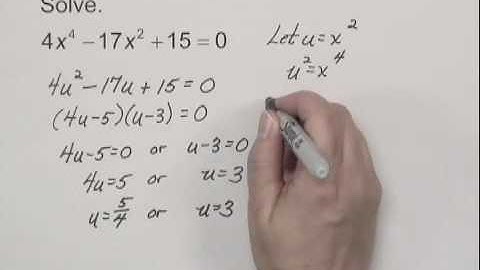 Solve.
4x⁴ − 17x² + 15 = 0
Let u = x²
u² = x⁴
4u² − 17u + 15 = 0
(4u − 5)(u − 3) = 0
4u − 5 = 0 or u − 3 = 0
4u = 5 u = 3
u = 5/4 or u = 3